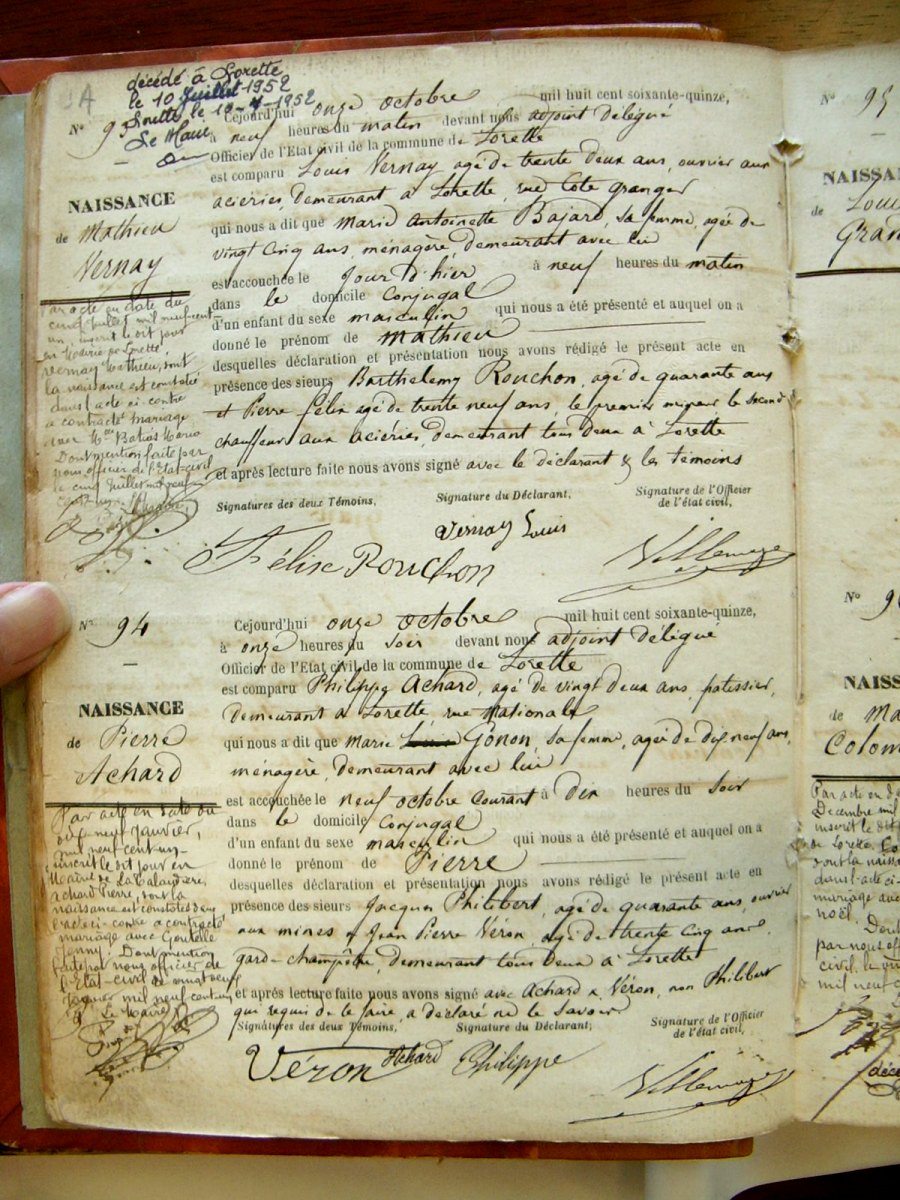 décédé à Lorette
le 10 Juillet 1952
Lorette le 10-7-1952
Le Maire
N° 93
Cejourd'hui onze octobre mil huit cent soixante-quinze,
à neuf heures du matin devant nous adjoint délégué
Officier de l'Etat civil de la commune de Lorette
est comparu Louis Vernay agé de trente deux ans, ouvrier aux
aciéries, demeurant à Lorette, rue Côte granger
qui nous a dit que Marie Antoinette Bajard, sa femme, agée de
vingt cinq ans, ménagère, demeurant avec lui
est accouchée le Jour d'hier à neuf heures du matin
dans le domicile Conjugal
d'un enfant du sexe masculin qui nous a été présenté et auquel on a
donné le prénom de Mathieu
desquelles déclaration et présentation nous avons rédigé le présent acte en
présence des sieurs Barthelemy Rouchon, agé de quarante ans
et Pierre Félix agé de trente neuf ans, le premier mineur le second
chauffeur aux aciéries, demeurant tous deux à Lorette
et après lecture faite nous avons signé avec le déclarant & les témoins
Signatures des deux Témoins, Signature du Déclarant, Signature de l'Officier
de l'état civil,
Vernay Louis
Félix Rouchon
NAISSANCE
de Mathieu
Vernay
Par acte en date du
cinq Juillet mil neuf cent
un, inscrit le dit jour
en Mairie de Lorette,
Vernay Mathieu, dont
la naissance est constatée
dans l'acte ci-contre
a contracté mariage
avec Maria
Dont mention faite par
nous officier de l'Etat-civil
le cinq Juillet mil neuf
cent un.
N° 94
Cejourd'hui onze octobre mil huit cent soixante-quinze,
à onze heures du soir devant nous adjoint délégué
Officier de l'Etat civil de la commune de Lorette
est comparu Philippe Achard, agé de vingt deux ans, patissier,
demeurant à Lorette, rue Nationale
qui nous a dit que Marie Gonon, sa femme, agée de dix neuf ans,
ménagère, demeurant avec lui
est accouchée le neuf octobre courant à dix heures du soir
dans le domicile Conjugal
d'un enfant du sexe masculin qui nous a été présenté et auquel on a
donné le prénom de Pierre
desquelles déclaration et présentation nous avons rédigé le présent acte en
présence des sieurs Jacques Philibert, agé de quarante ans, ouvrier
aux mines & Jean Pierre Véron, agé de trente cinq ans
garde-champêtre, demeurant tous deux à Lorette
et après lecture faite nous avons signé avec Achard & Véron, non Philibert
qui requis de le faire, a déclaré ne le savoir
Signatures des deux Témoins, Signature du Déclarant, Signature de l'Officier
de l'état civil,
Véron Achard Philippe
NAISSANCE
de Pierre
Achard
Par acte en date du
neuf Janvier,
mil neuf cent un
inscrit le dit jour en
Mairie de La Talaudière,
Achard Pierre, dont la
naissance est constatée dans
l'acte ci-contre a contracté
mariage avec Goutelle
Jenny. Dont mention
faite par nous officier de
l'Etat-civil le vingt neuf
Janvier mil neuf cent un
Le Maire
N° 95
NAISSAN
de Loui
Gran
N° 9
NAISS
de Ma
Colom
Par acte en d
Décembre mil
inscrit le dit
de Lorette, Co
dont la naiss
dans l'acte ci-
mariage ave
noël.
Dont
par nous off
civil, le
mil neuf c
déc